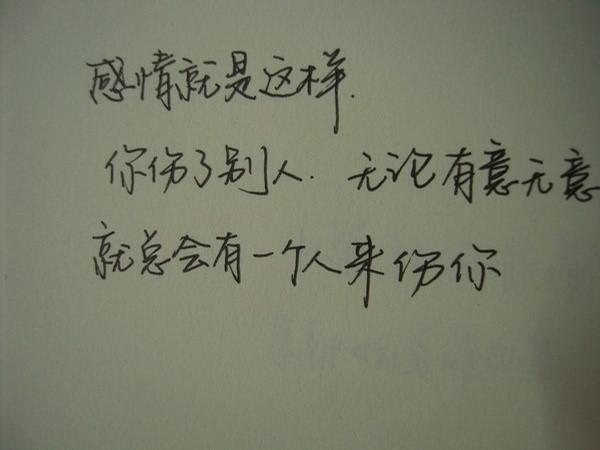 感情就是这样.
你伤了别人. 无论有意无意
就总会有一个人来伤你